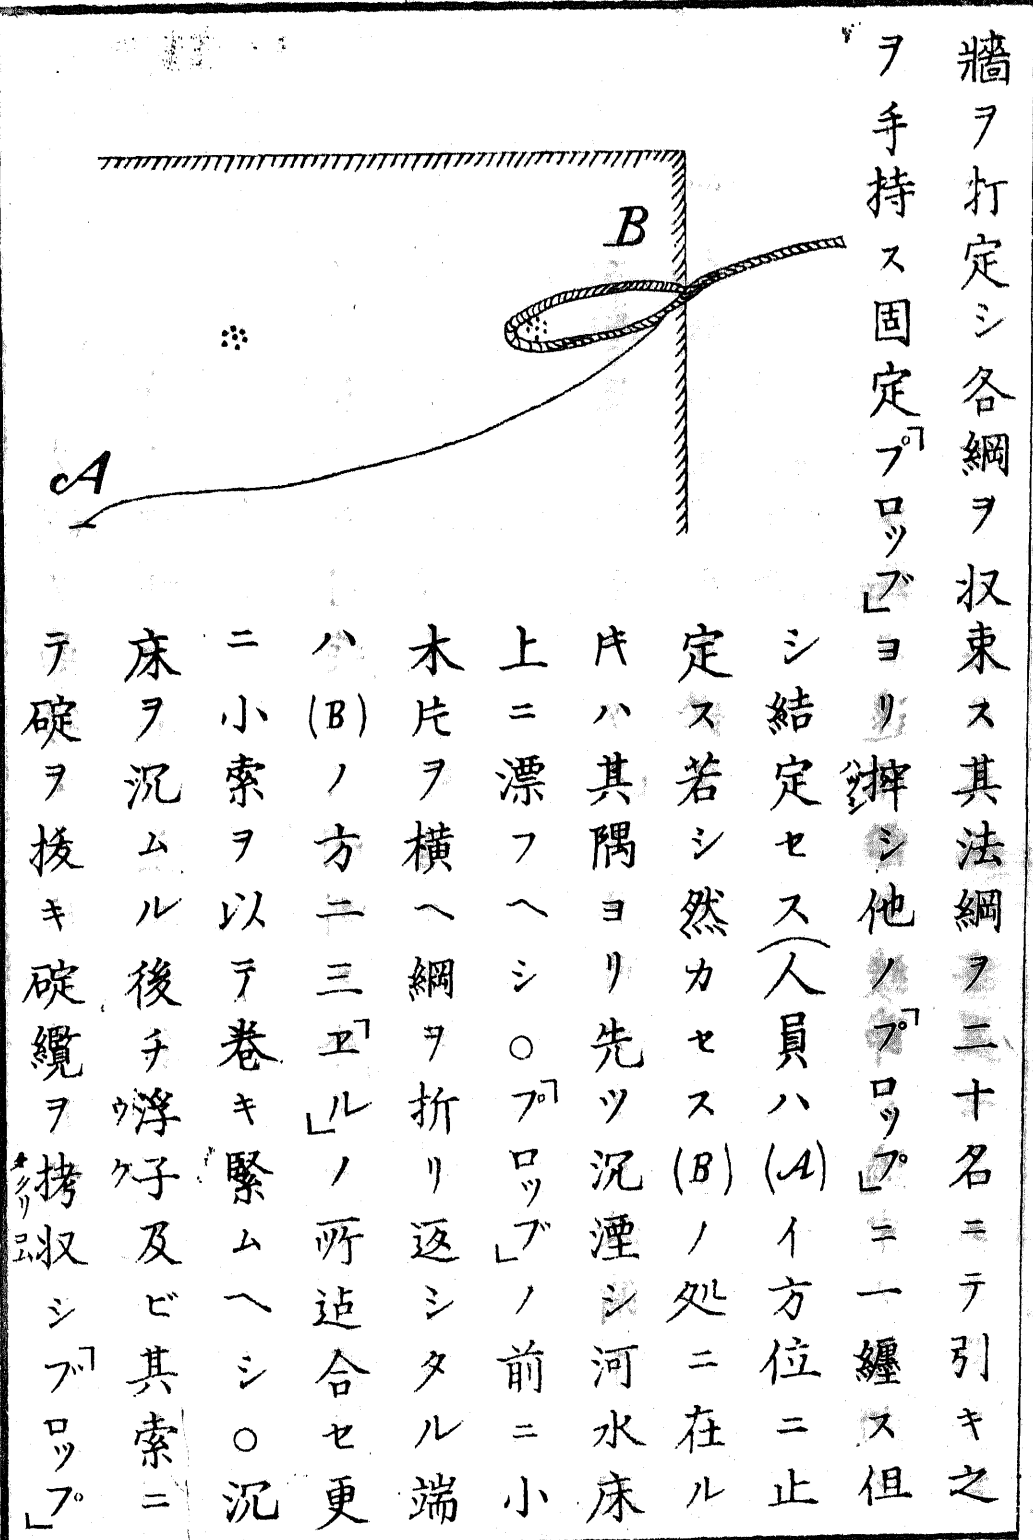 牆ヲ打定シ各綱ヲ収束ス其法綱ヲ二十名ニテ引キ之
ヲ手持ス固定「プロッブ」ヨリ摔シ他ノ「プロップ」ニ一纏ス但
ハツシ
シ結定セス(人員ハ(A)イ方位ニ止
定ス若シ然カセス(B)ノ処ニ在ル
片ハ其隅ヨリ先ツ沉湮シ河水床
上ニ漂フヘシ○「プロッブ」ノ前ニ小
木片ヲ横ヘ綱ヲ折リ返シタル端
ハ(B)ノ方ニ三「ヱル」ノ所迠合セ更
ニ小索ヲ以テ巻キ緊ムヘシ○沉
床ヲ沉ムル後チ浮子及ビ其索ニ
ウケ
テ碇ヲ抜キ碇纜ヲ拷収シ「ブロップ」
タクリコム
B
A